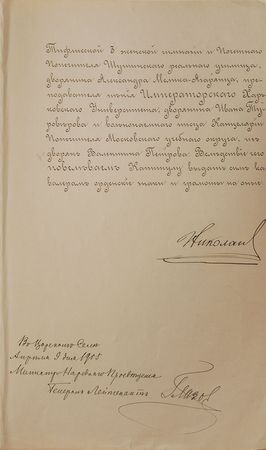 Тифлисской 3 женской гимназии и Почетного
Попечителя Шушинского реального училища,
дворянина Александра Мелика-Азарянца, пре-
подавателя пения Императорского Харь-
ковского Университета, дворянина Ивана Ту-
роверова и вольнонаемнаго писца Канцелярии
Попечителя Московского учебного округа, из
дворян Валентина Петрова. Вследствие сего
повелеваем Капитулу выдать сим ка-
валерам орденские знаки и грамоты на оные.
Николай
В Царском Селе
Апреля 9 дня 1905
Министр Народного Просвещения
Генерал Лейтенант Глазов